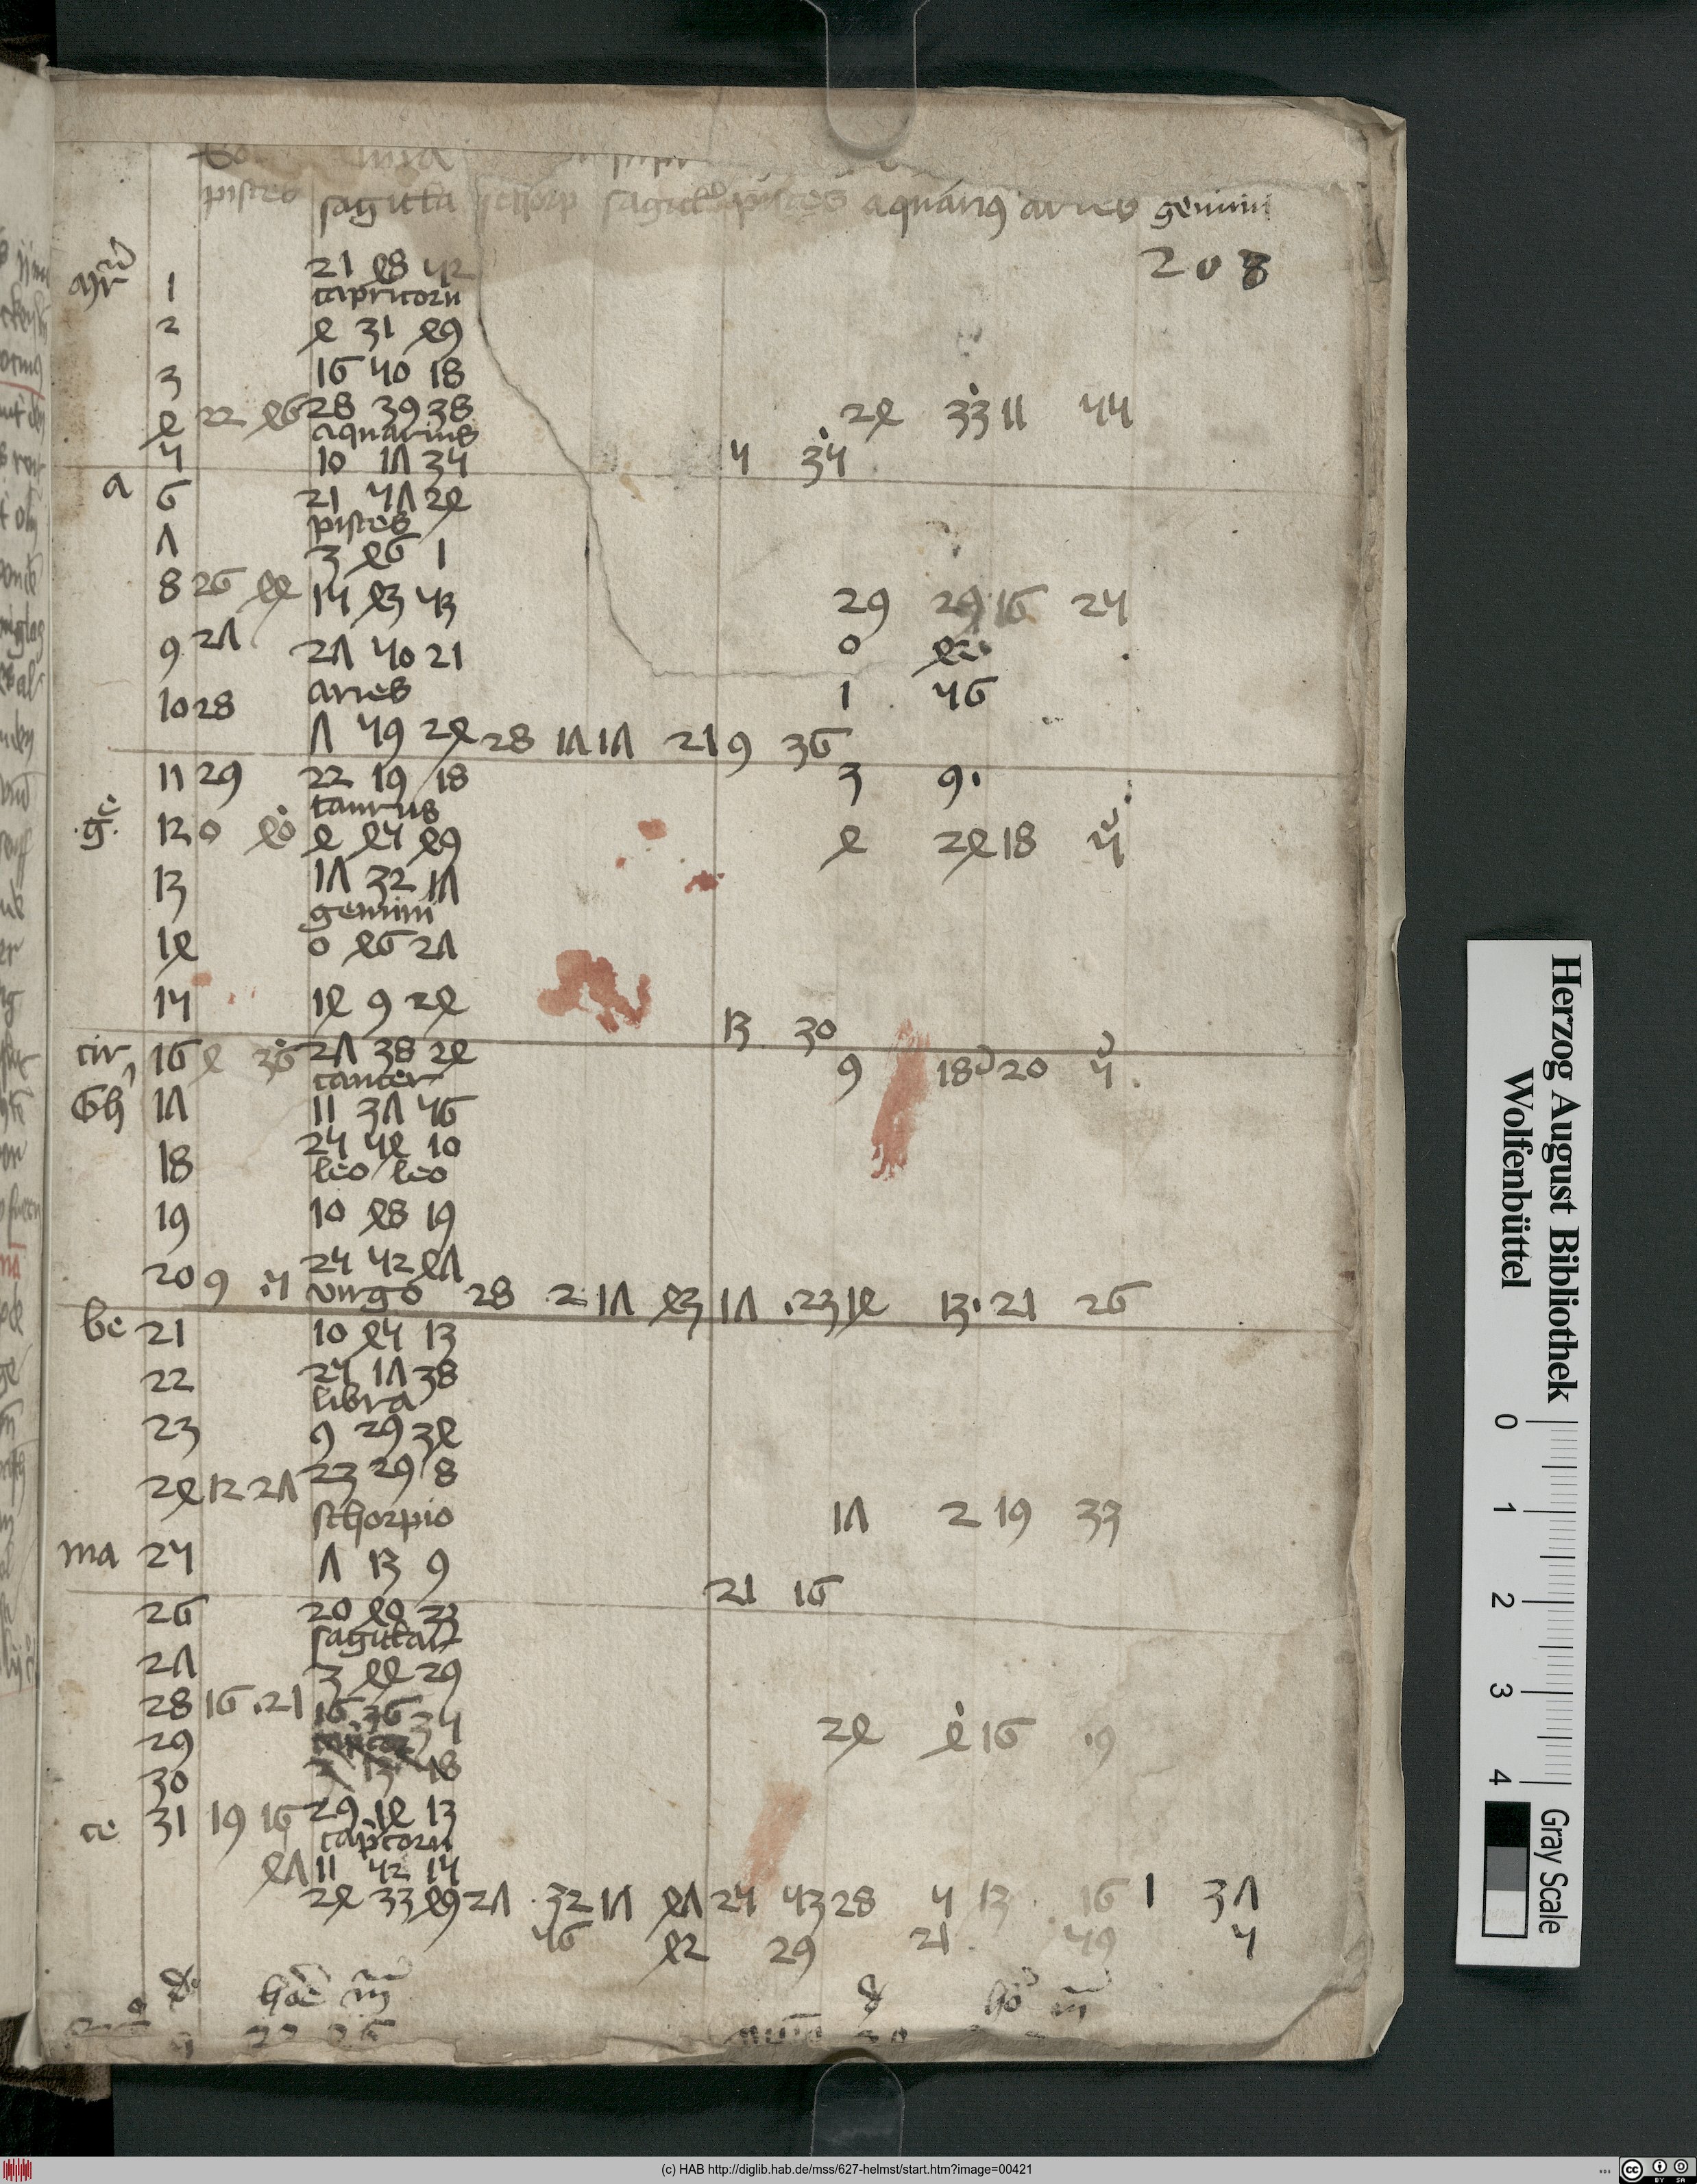 pisces sagitta schorp sagitt pisces aquarius aries gemini
208
21 48 52
1 capricorn
2 4 31 49
3 16 50 18
4 22 46 28 39 38 24 33 11 55
aquarius
5 10 17 35 5 35
a 6 21 57 24
pisces
7 3 46 1
8 26 44 15 43 53 29 29 16 25
9 27 27 50 21 0 42
10 28 aries 1 56
7 59 24 28 17 17 21 9 36
11 29 22 19 18 3 9
taurus
g 12 0 40 4 45 49 4 24 18 5
13 17 32 17
gemini
14 0 46 27
15 14 9 24
13 30
cir 16 4 36 27 38 24 9 18 20 5
cancer
Gh 17 11 37 56
25 54 10
18 leo leo
19 10 48 19
25 52 47
20 9 5 virgo 28 2 17 43 17 23 14 13 21 26
be 21 10 45 13
22 25 17 38
libra
23 9 29 34
24 12 27 23 29 8
schorpio 17 2 19 33
ma 25 7 13 9
21 16
26 20 44 33
sagittar
27 3 44 29
28 16 21 16 36 35
29 24 4 16 9
30 18
ce 31 19 16 29 14 13
capcorn
47 11 52 15
24 33 49 27 32 17 47 25 53 28 5 13 16 1 37
56 42 29 21 59 5
d hoe m d ho m
(c) HAB http://diglib.hab.de/mss/627-helmst/start.htm?image=00421
Herzog August Bibliothek
Wolfenbüttel
0 1 2 3 4
Gray Scale
cc BY SA